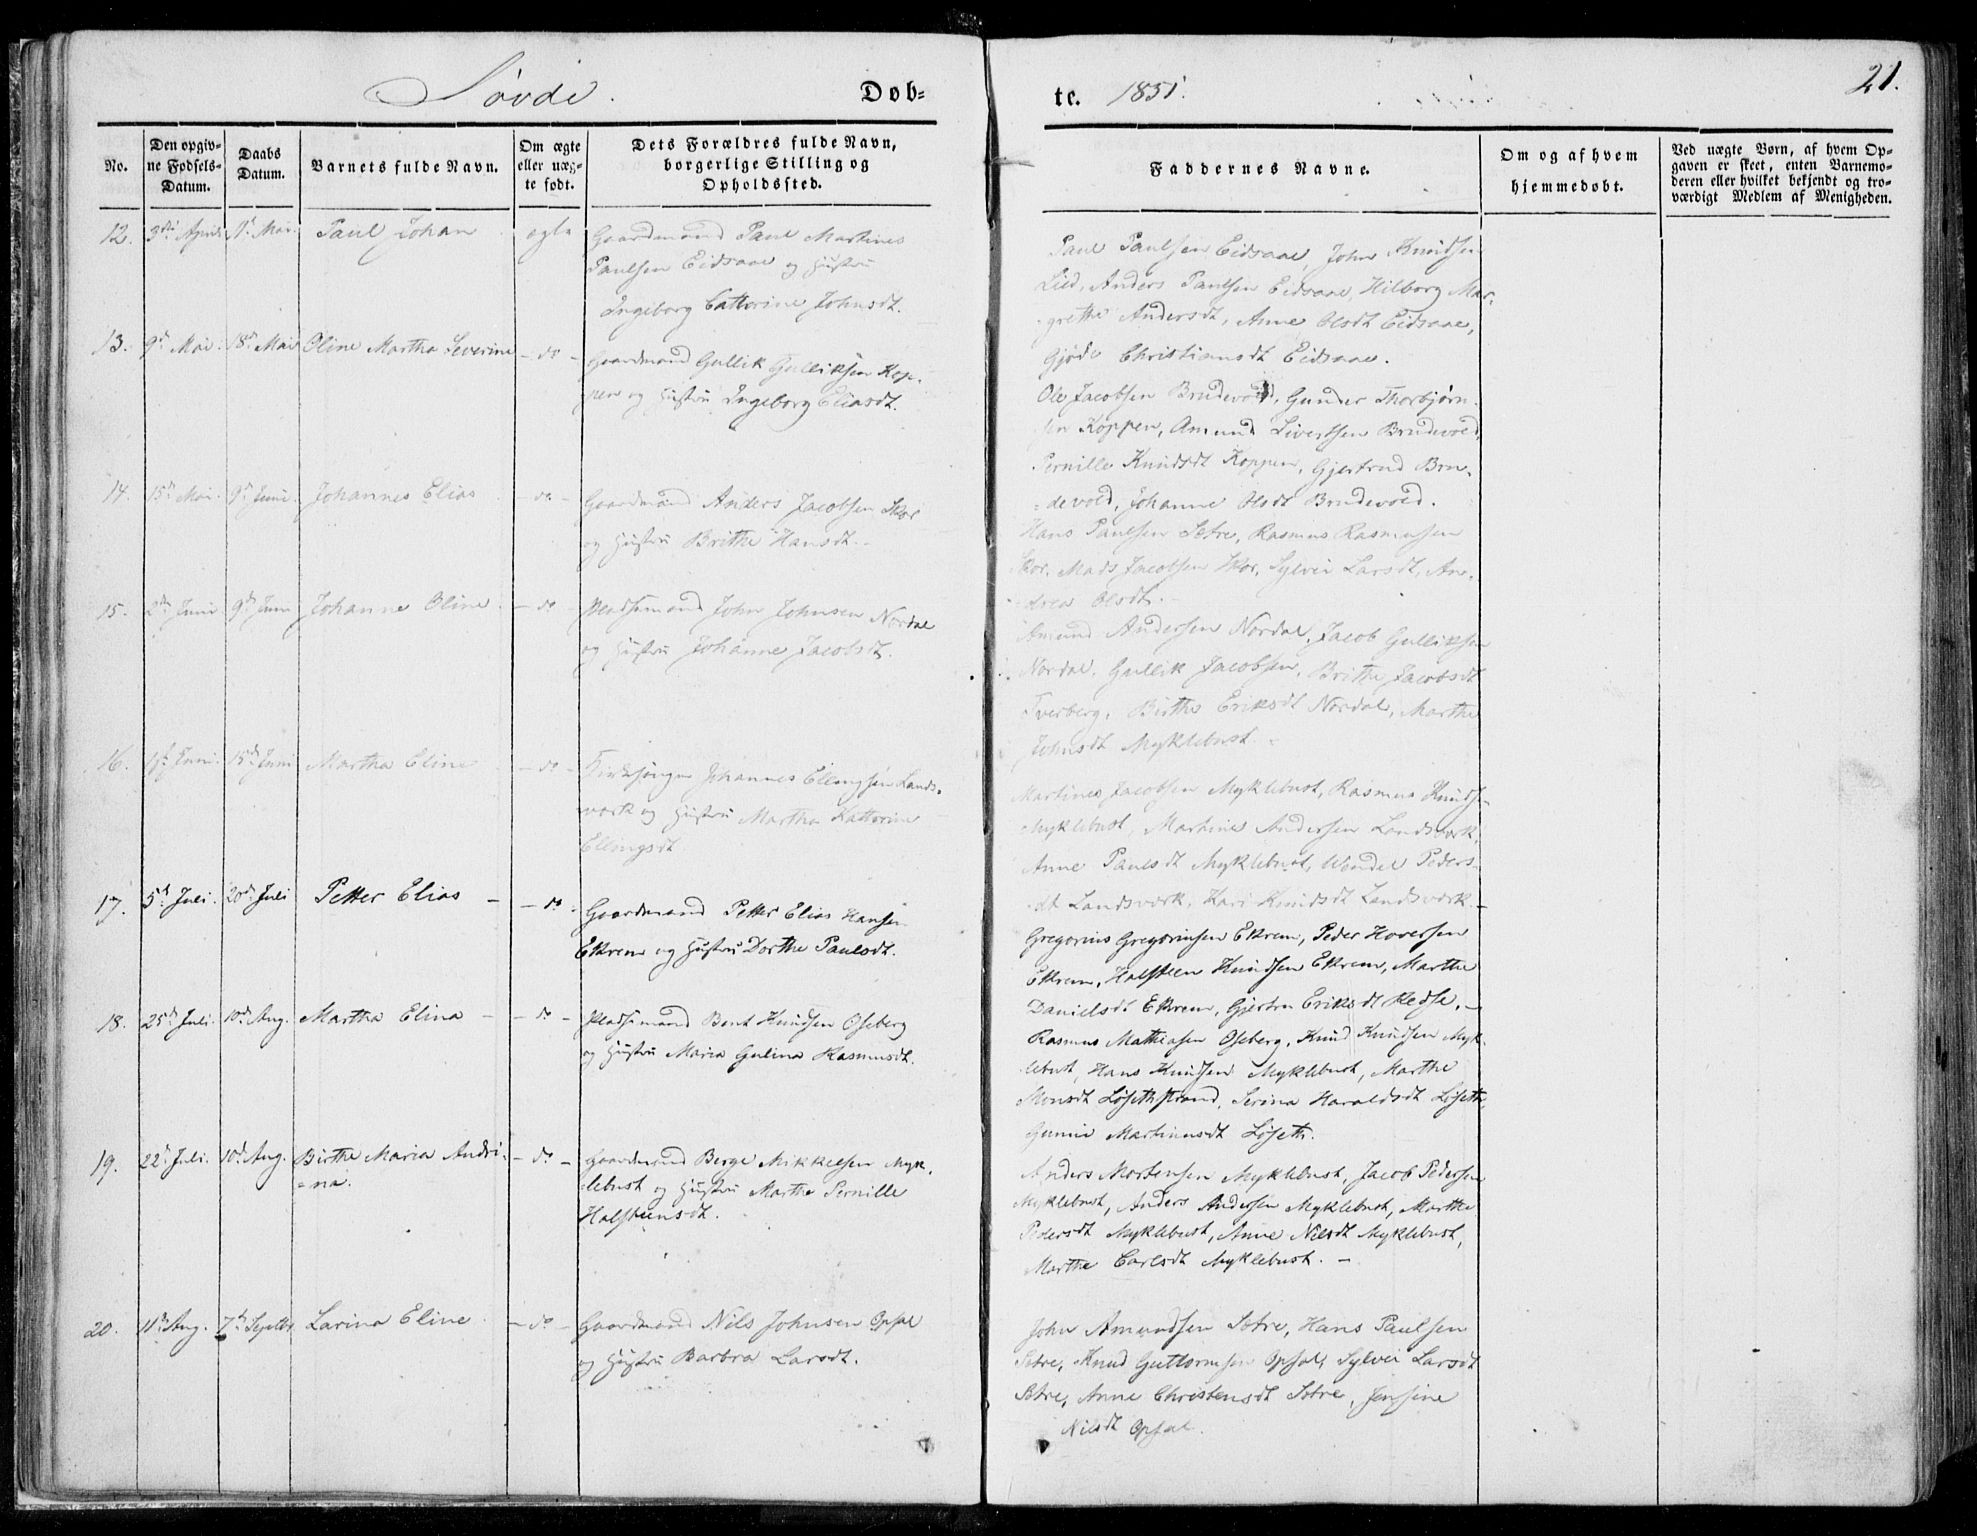 Søvde. Døb=
te. 1851.
21.
No.
Den opgiv=
ne Fødsels=
Datum.
Daabs
Datum.
Barnets fulde Navn.
Om ægte
eller uæg=
te født.
Dets Forældres fulde Navn,
borgerlige Stilling og
Opholdssted.
Faddernes Navne.
Om og af hvem
hjemmedøbt.
Ved uægte Børn, af hvem Op=
gaven er skeet, enten Barnemo=
deren eller hvilket bekjendt og tro=
værdigt Medlem af Menigheden.
12. 3die April 1ste Mai. Paul Johan ægte Gaardmand Paul Martines
Paulsen Eidsaae og Hustru
Ingeborg Cattorine Johnsdt.
Paul Paulsen Eidsaae, John Knudsen
Lied, Anders Paulsen Eidsaae, Hilborg Mar=
grethe Andersdt, Anne Olsdt Eidsaae,
Gjøde Christiansdt Eidsaae.
13. 9de Mai. 18de Mai Oline Martha Severine – do – Gaardmand Gullik Gulliksen Kop=
pen og Hustru Ingeborg Eliasdt.
Ole Jacobsen Brudevold, Gunder Thorbjørn=
sen Koppen, Amund Sivertsen Brudevold,
Pernille Knudsdt Koppen, Gjertrud Bru=
=devold, Johanne Olsdt Brudevold.
14. 15de Mai. 9de Juni. Johannes Elias – do – Gaardmand Anders Jacobsen Skor
og Hustru Brithe Hansdt.
Hans Paulsen Sætre, Rasmus Rasmussen
Skor, Mads Jacobsen Skor, Sylvei Larsdt, An=
drea Olsdt. –
15. 2den Juni 9de Juni Johanne Oline – do – Pladsemand John Johnsen Nordal
og Hustru Johanne Jacobsdt.
Amund Andersen Nordal, Jacob Gulliksen
Nordal, Gullik Jacobsen, Brithe Jacobsdt
Tverberg, Birthe Eriksdt Nordal, Marthe
Johnsdt Myklebust. –
16. Juni. 15de Juni Martha Eline – do – Kirkesanger Johannes Ellingsen Lands=
værk og Hustru Martha Kattorine
Ellingsdt
Martines Jacobsen Myklebust, Rasmus Knudsen
Myklebust, Martines Andersen Landsværk,
Anne Paulsdt Myklebust, Wendel Peders=
dt Landsværk, Kari Knudsdt Landsværk –
17. 5te Juli. 20de Juli Petter Elias – – do – Gaardmand Petter Elias Hansen
Ekrem og Hustru Dorthe Paulsdt.
Gregorius Gregoriusen Ekrem, Peder Hoversen
Ekrem, Halsteen Knudsen Ekrem, Marthe
Danielsdt Ekrem, Gjertru Eriksdt Redse. –
18. 25de Juli. 10de Aug. Martha Elina – – do – Pladsemand Bent Knudsen Oseberg
og Hustru Maria Gulina Rasmusdt.
Rasmus Mathiasen Oseberg, Knud Knudsen Myk=
lebust, Hans Knudsen Myklebust, Marthe
Monsdt Løsethstrand, Serina Haraldsdt Løseth,
Gunnie Martinusdt Løseth.
19. 22de Juli. 10de Aug. Birthe Maria Andri=
=na. – do – Gaardmand Berge Mikkelsen Myk=
lebust og Hustru Marthe Pernille
Halsteensdt.
Anders Mortensen Myklebust, Jacob Pedersen
Myklebust, Anders Andersen Myklebust, Marthe
Pedersdt Myklebust, Anne Nilsdt Myklebust,
Marthe Carlsdt Myklebust. –
20. 11te Aug. 7de Septbr Larina Eline – do – Gaardmand Nils Johnsen Opsal
og Hustru Barbra Larsdt.
John Amundsen Sætre, Hans Paulsen
Sætre, Knud Guttormsen Opsal, Sylvei Larsdt
Sætre, Anne Christensdt Sætre, Jensine
Nilsdt Opsal.